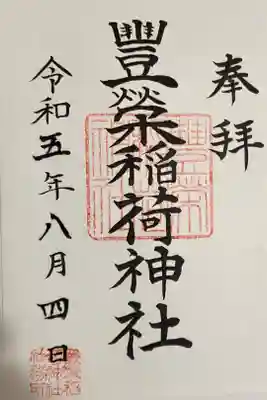 奉拝
豊榮稲荷神社
令和五年八月四日